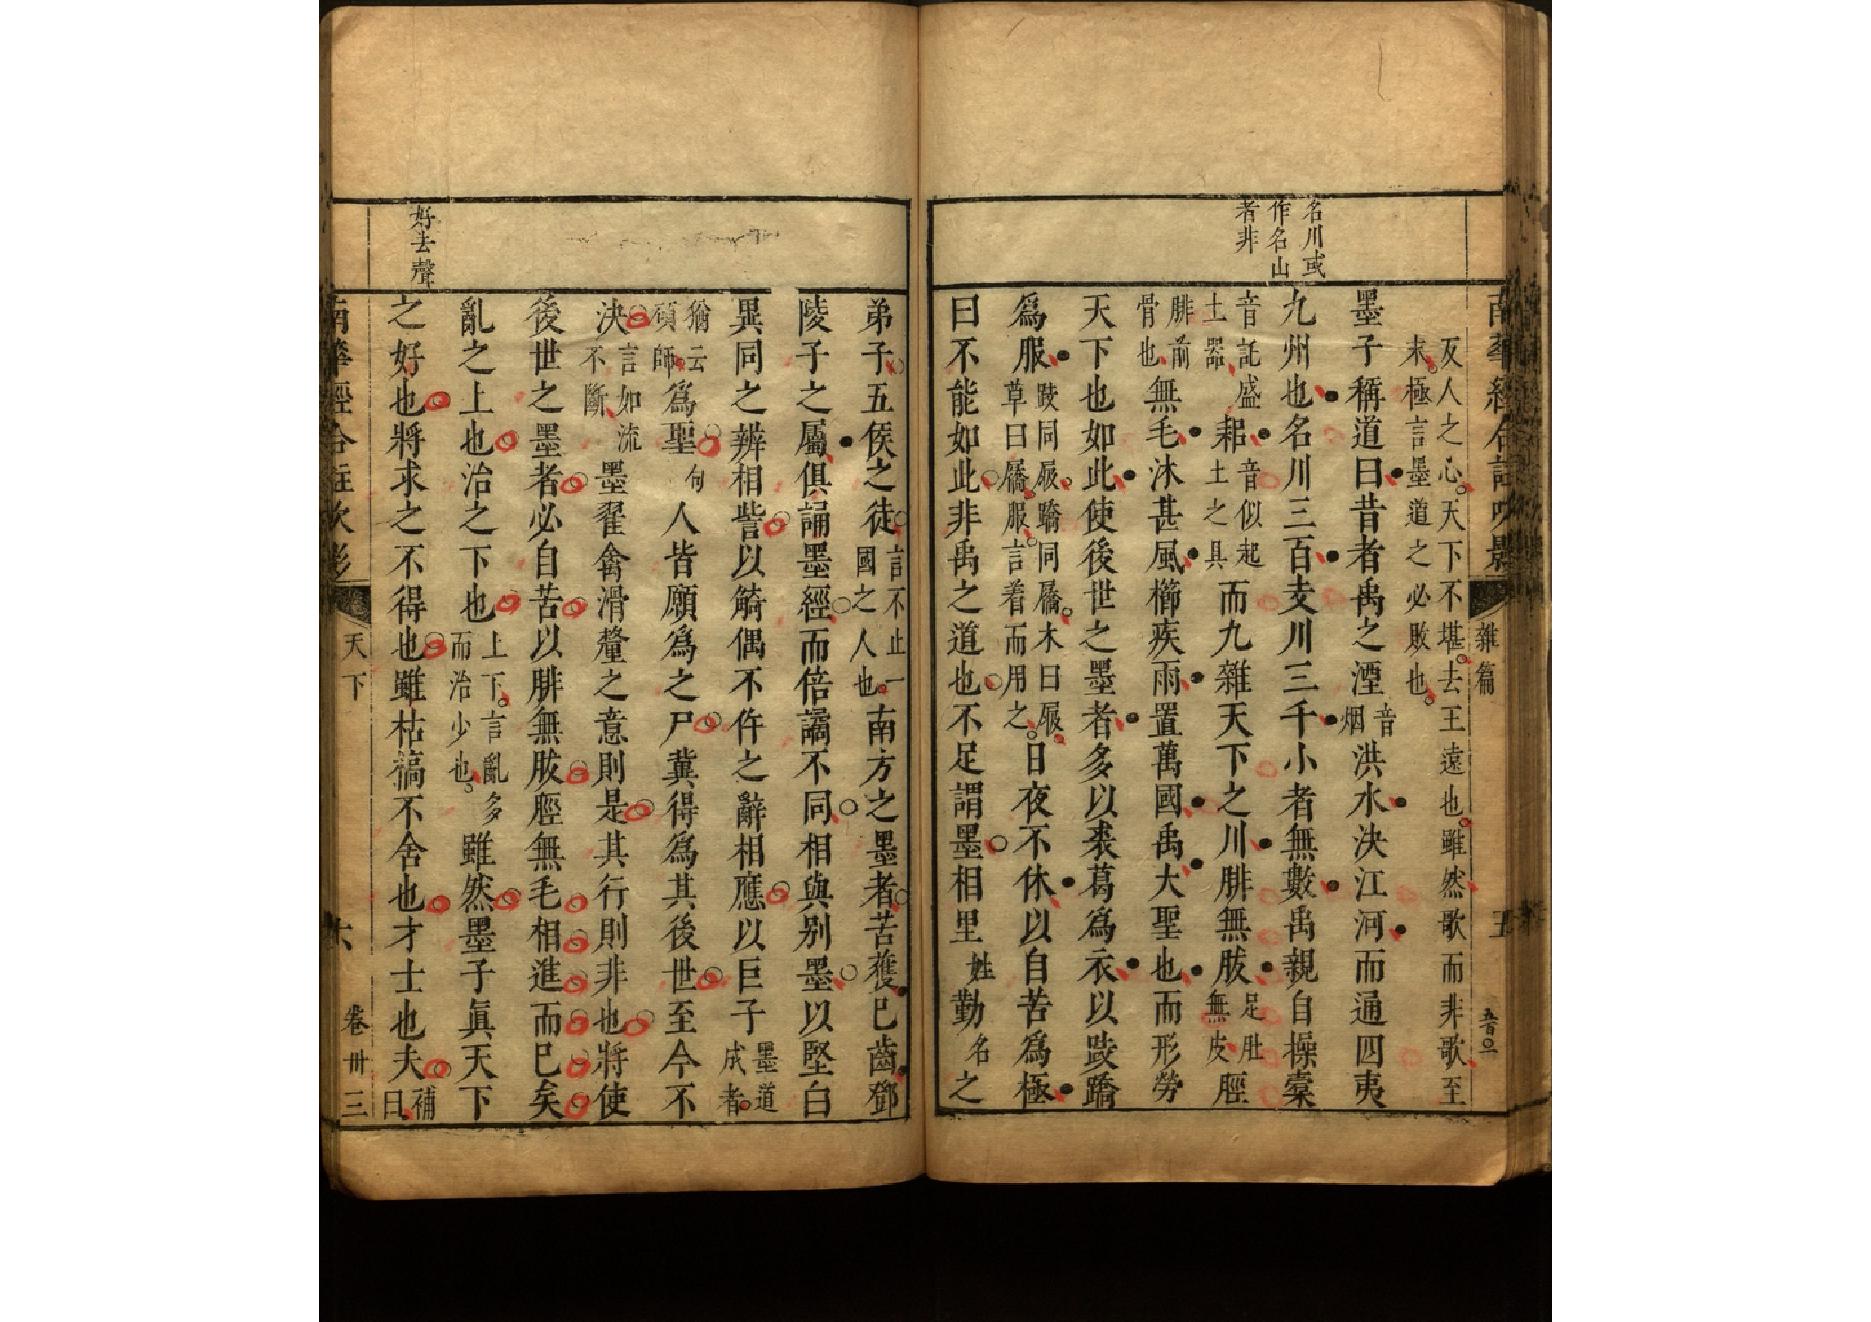 名川或
作名山
者非
南華經合註吹影
雜篇
五
反人之心天下不堪去王遠也雖然歌而非歌至
末極言墨道之必敗也
墨子稱道曰昔者禹之湮音烟洪水決江河而通四夷
九州也名川三百支川三千小者無數禹親自操橐
音託盛土器耜音似起土之具而九雜天下之川腓無胈足肚無皮脛
腓前骨也無毛沐甚風櫛疾雨置萬國禹大聖也而形勞
天下也如此使後世之墨者多以裘葛為衣以跂蹻
為服跂同屐蹻同屩木曰屐草曰屩服言着而用之日夜不休以自苦為極
曰不能如此非禹之道也不足謂墨相里姓勤名之
好去聲
弟子五侯之徒言不止一國之人也南方之墨者苦獲已齒鄧
陵子之屬俱誦墨經而倍譎不同相與别墨以堅白
異同之辨相訾以觭偶不仵之辭相應以巨子墨道成者
猶云碩師為聖句人皆願為之尸冀得為其後世至今不
決言如流不斷墨翟禽滑釐之意則是其行則非也將使
後世之墨者必自苦以腓無胈脛無毛相進而已矣
亂之上也治之下也上下言亂多而治少也雖然墨子真天下
之好也將求之不得也雖枯槁不舍也才士也夫補曰
南華經合註吹影
天下
六
卷卅三